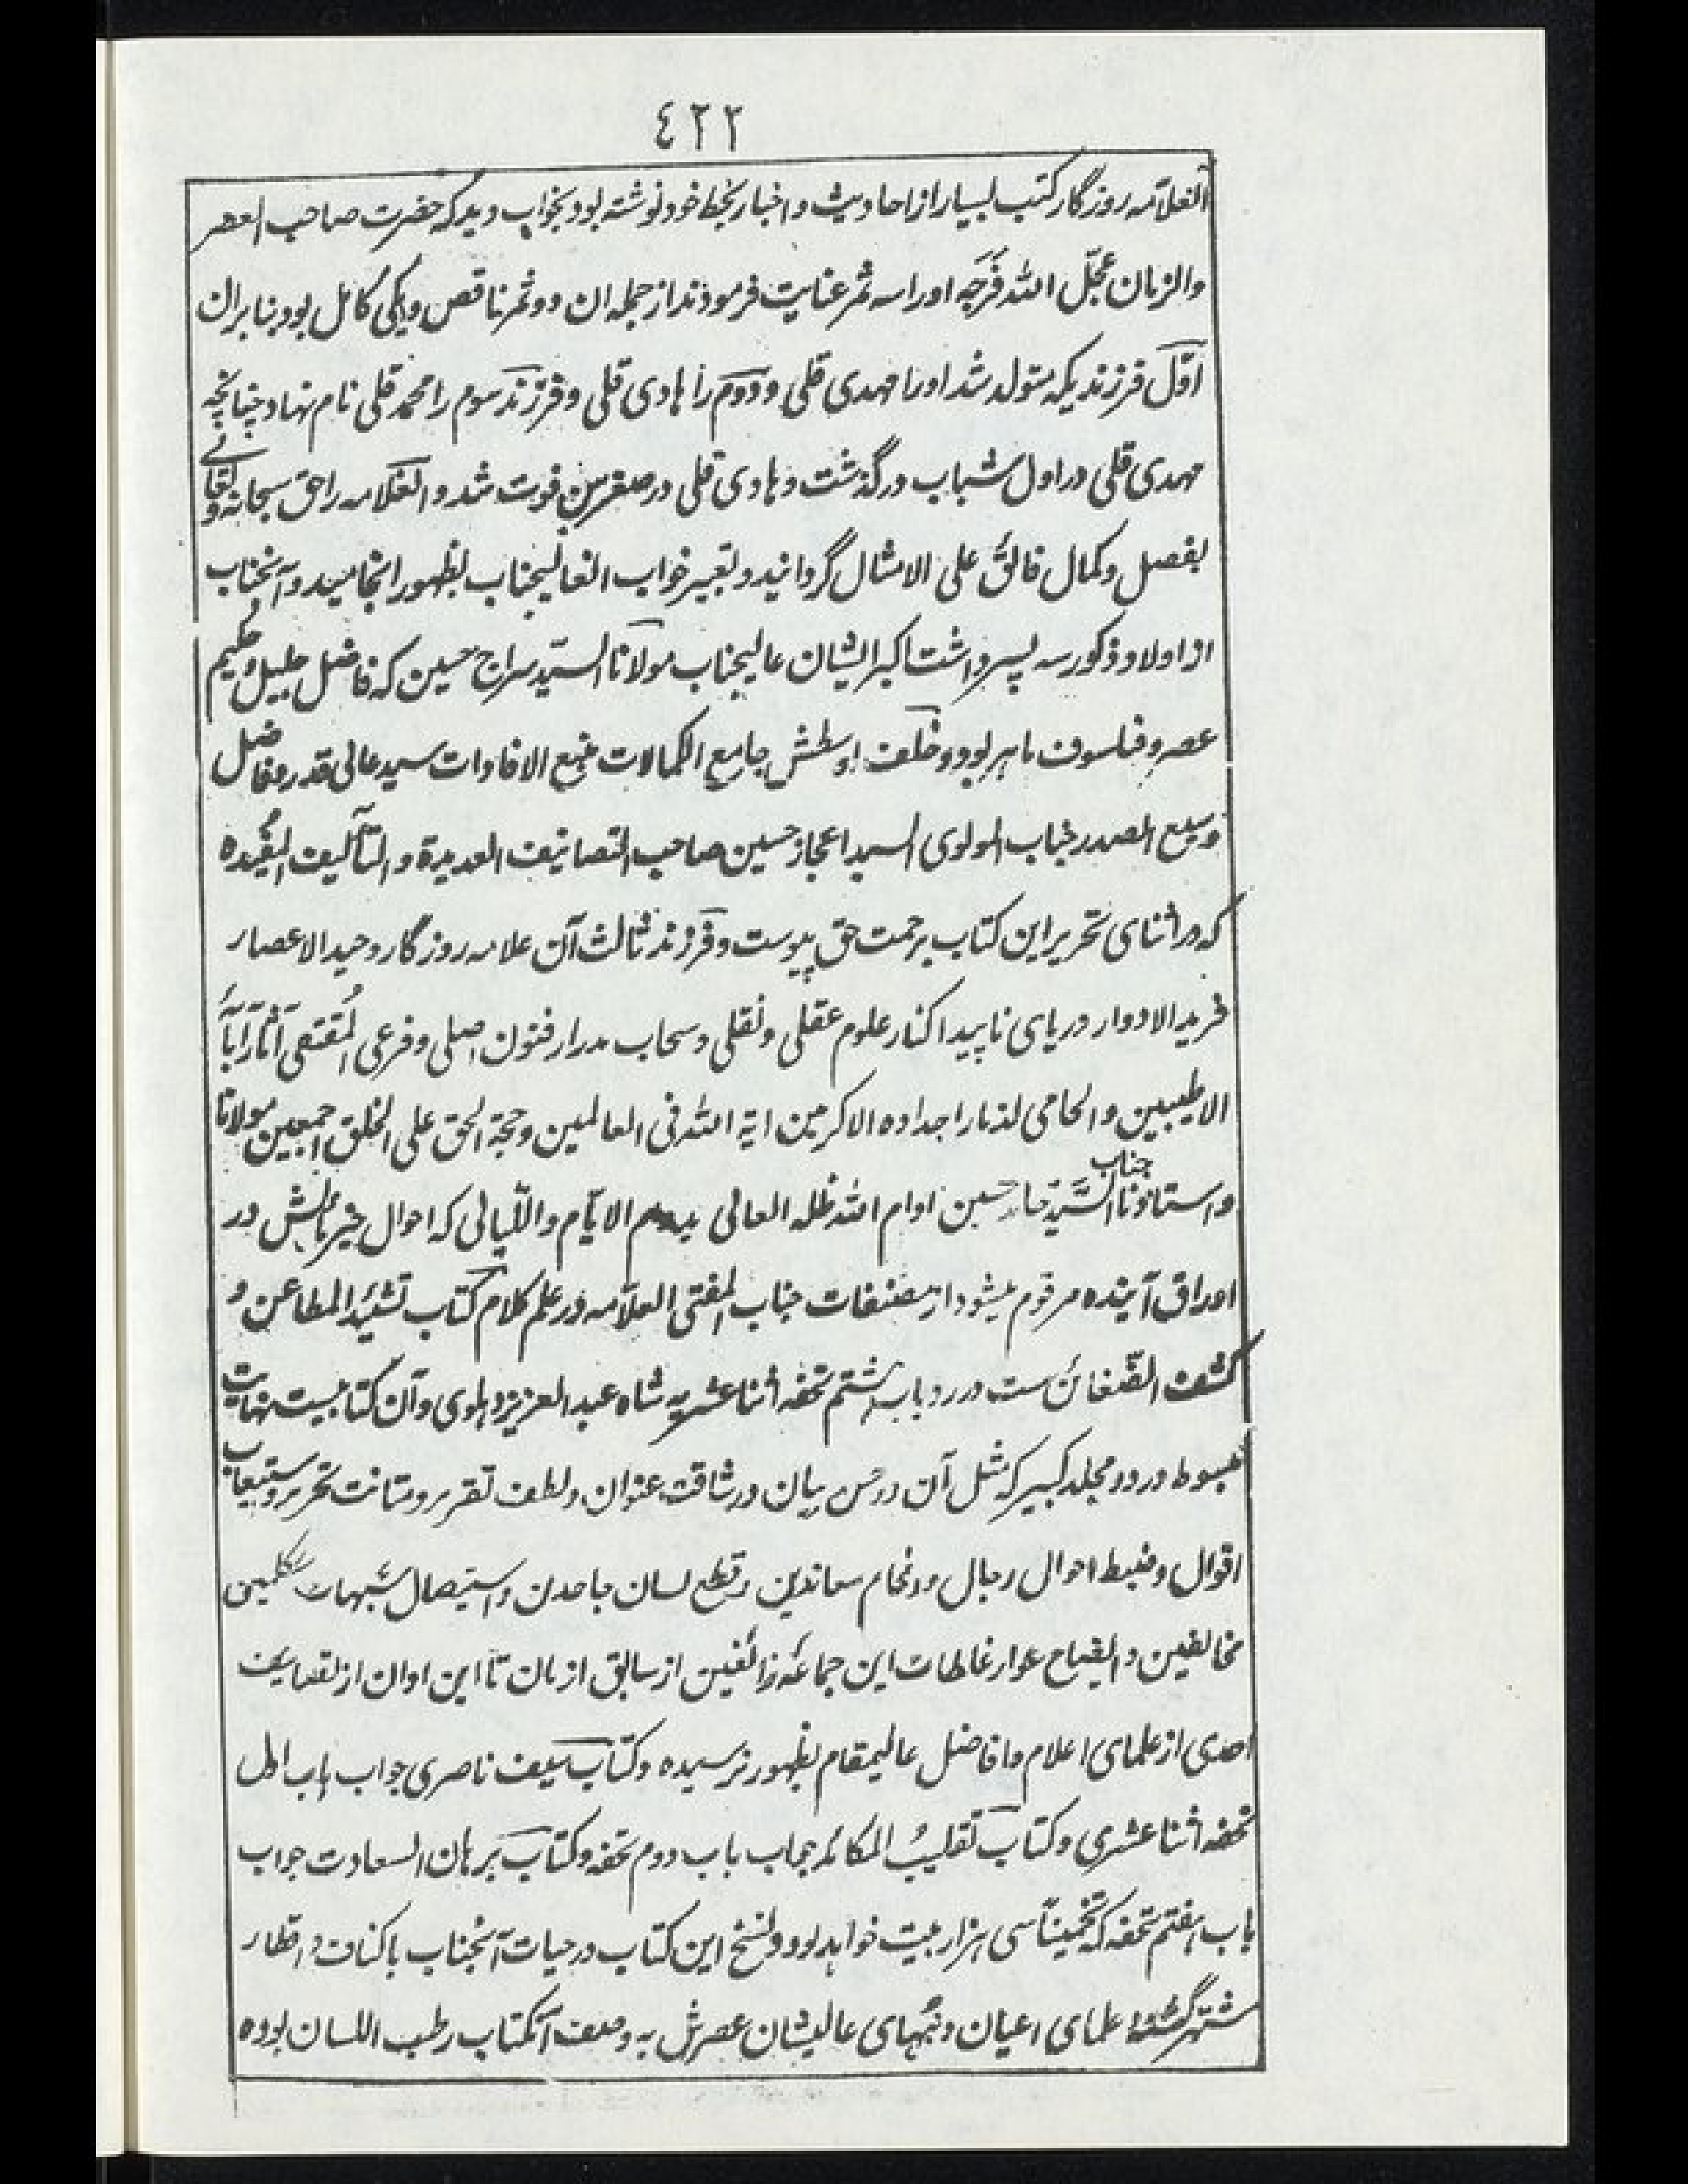 ٤٢٢
آنعلّامه روزگار کتب بسیار از احادیث و اخبار بخط خود نوشته بود بخواب دید که حضرت صاحب العصر
والزمان عجّل اللّه فَرَجَه او را سه ثمر عنایت فرمودند از جمله ان دو ثمر ناقص و یکی کامل بود بنابران
اوّل فرزندیکه متولد شد او را مهدی قلی و دوم را هادی قلی و فرزند سوم را محمد قلی نام نهاد چنانچه
مهدی قلی در اول شباب درگذشت و هادی قلی در صغر سن فوت شد و آنعلامه را حق سبحانه و تعالے
بفضل و کمال فائق علی الامثال گردانید و تعبیر خواب آنعالیجناب بظهور انجامید و آنجناب
از اولاد ذکور سه پسر داشت اکبر ایشان عالیجناب مولانا السیّد سراج حسین که فاضل جلیل و حکیم
عصر و فیلسوف ماهر بود و خلف اوسطش جامع الکمالات منبع الافادات سید عالی قدر و فاضل
وسیع الصدر جناب المولوی السید اعجاز حسین صاحب التصانیف العدیدة والتآلیف المفیده
که در اثنای تحریر این کتاب برحمت حق پیوست و فرزند ثالث آن علامه روزگار وحید الاعصار
فرید الادوار دریای ناپیدا کنار علوم عقلی و نقلی و سحاب مدرار فنون اصلی و فرعی المُقتفی آثار آبائه
الاطیبین والحامی لذمار اجداده الاکرمین ایة اللّه فی العالمین و حجة الحق علی الخلق اجمعین مولانا
و استاذنا جناب السَّیّد حامد حسین ادام اللّه ظله العالی بدوام الایّام واللّیالی که احوال خیر مآلش در
اوراق آینده مرقوم میشود از مصنفات جناب المفتی العلّامه در علم کلام کتاب تشئید المطاعن و
کشف الضّغائن ست در رد باب هشتم تحفه اثنا عشریه شاه عبد العزیز دهلوی و آن کتابیست نهایت
مبسوط در دو مجلد کبیر که مثل آن در حسن بیان و رشاقت عنوان و لطف تقریر و متانت تحریر و استیعاب
اقوال و ضبط احوال رجال و افحام معاندین و قطع لسان جاحدین و استیصال شبهات متکلمین
مخالفین و ایضاح عوار غلطات این جماعه زائغین از سابق ازمان تا این اوان از تصانیف
احدی از علمای اعلام و افاضل عالیمقام بظهور نرسیده و کتاب سیف ناصری جواب باب اول
تحفه اثنا عشری و کتاب تقلیبُ المکائد جواب باب دوم تحفه و کتاب برهان السعادت جواب
باب هفتم تحفه که تخمیناً سی هزار بیت خواهد بود و نسخ این کتاب در حیات آنجناب باکناف و اقطار
مشتهر گشته علمای اعیان و نبهای عالیشان عصرش به وصف آنکتاب رطب اللسان بوده